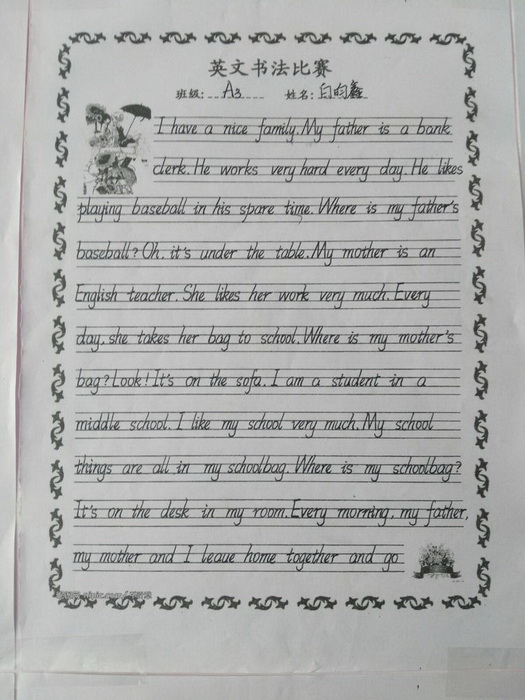 英文书法比赛
班级: A3 姓名: 白昀鑫
I have a nice family. My father is a bank
clerk. He works very hard every day. He likes
playing baseball in his spare time. Where is my father's
baseball? Oh, it's under the table. My mother is an
English teacher. She likes her work very much. Every
day, she takes her bag to school. Where is my mother's
bag? Look! It's on the sofa. I am a student in a
middle school. I like my school very much. My school
things are all in my schoolbag. Where is my schoolbag?
It's on the desk in my room. Every morning, my father,
my mother and I leave home together and go